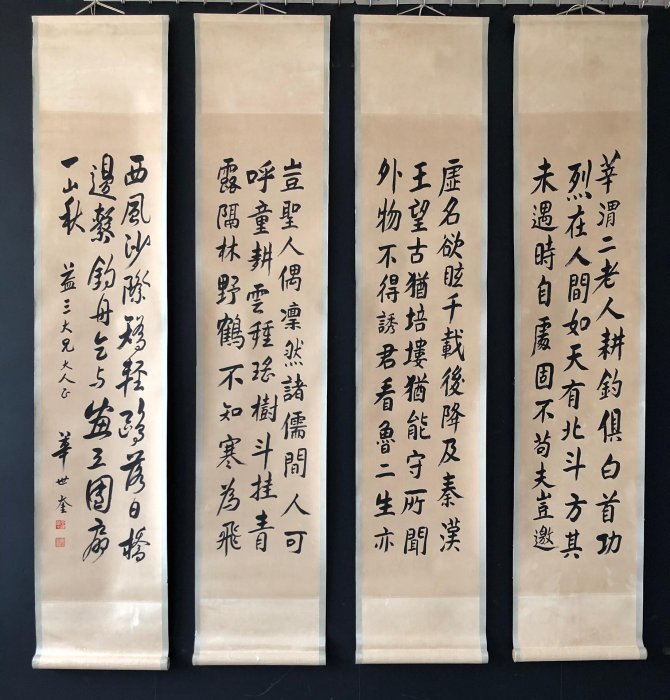 莘渭二老人耕釣俱白首功
烈在人間如天有北斗方其
未遇時自處固不苟夫豈邀
虛名欲眩千載後降及秦漢
王望古猶培塿猶能守所聞
外物不得誘君看魯二生亦
豈聖人偶凜然諸儒間人可
呼童耕雲種瑤樹斗挂青
露隔林野鶴不知寒為飛
西風沙際矯輕鷗落日橋
邊繫釣舟乞与畫工團扇
一山秋
益三大兄大人正
華世奎